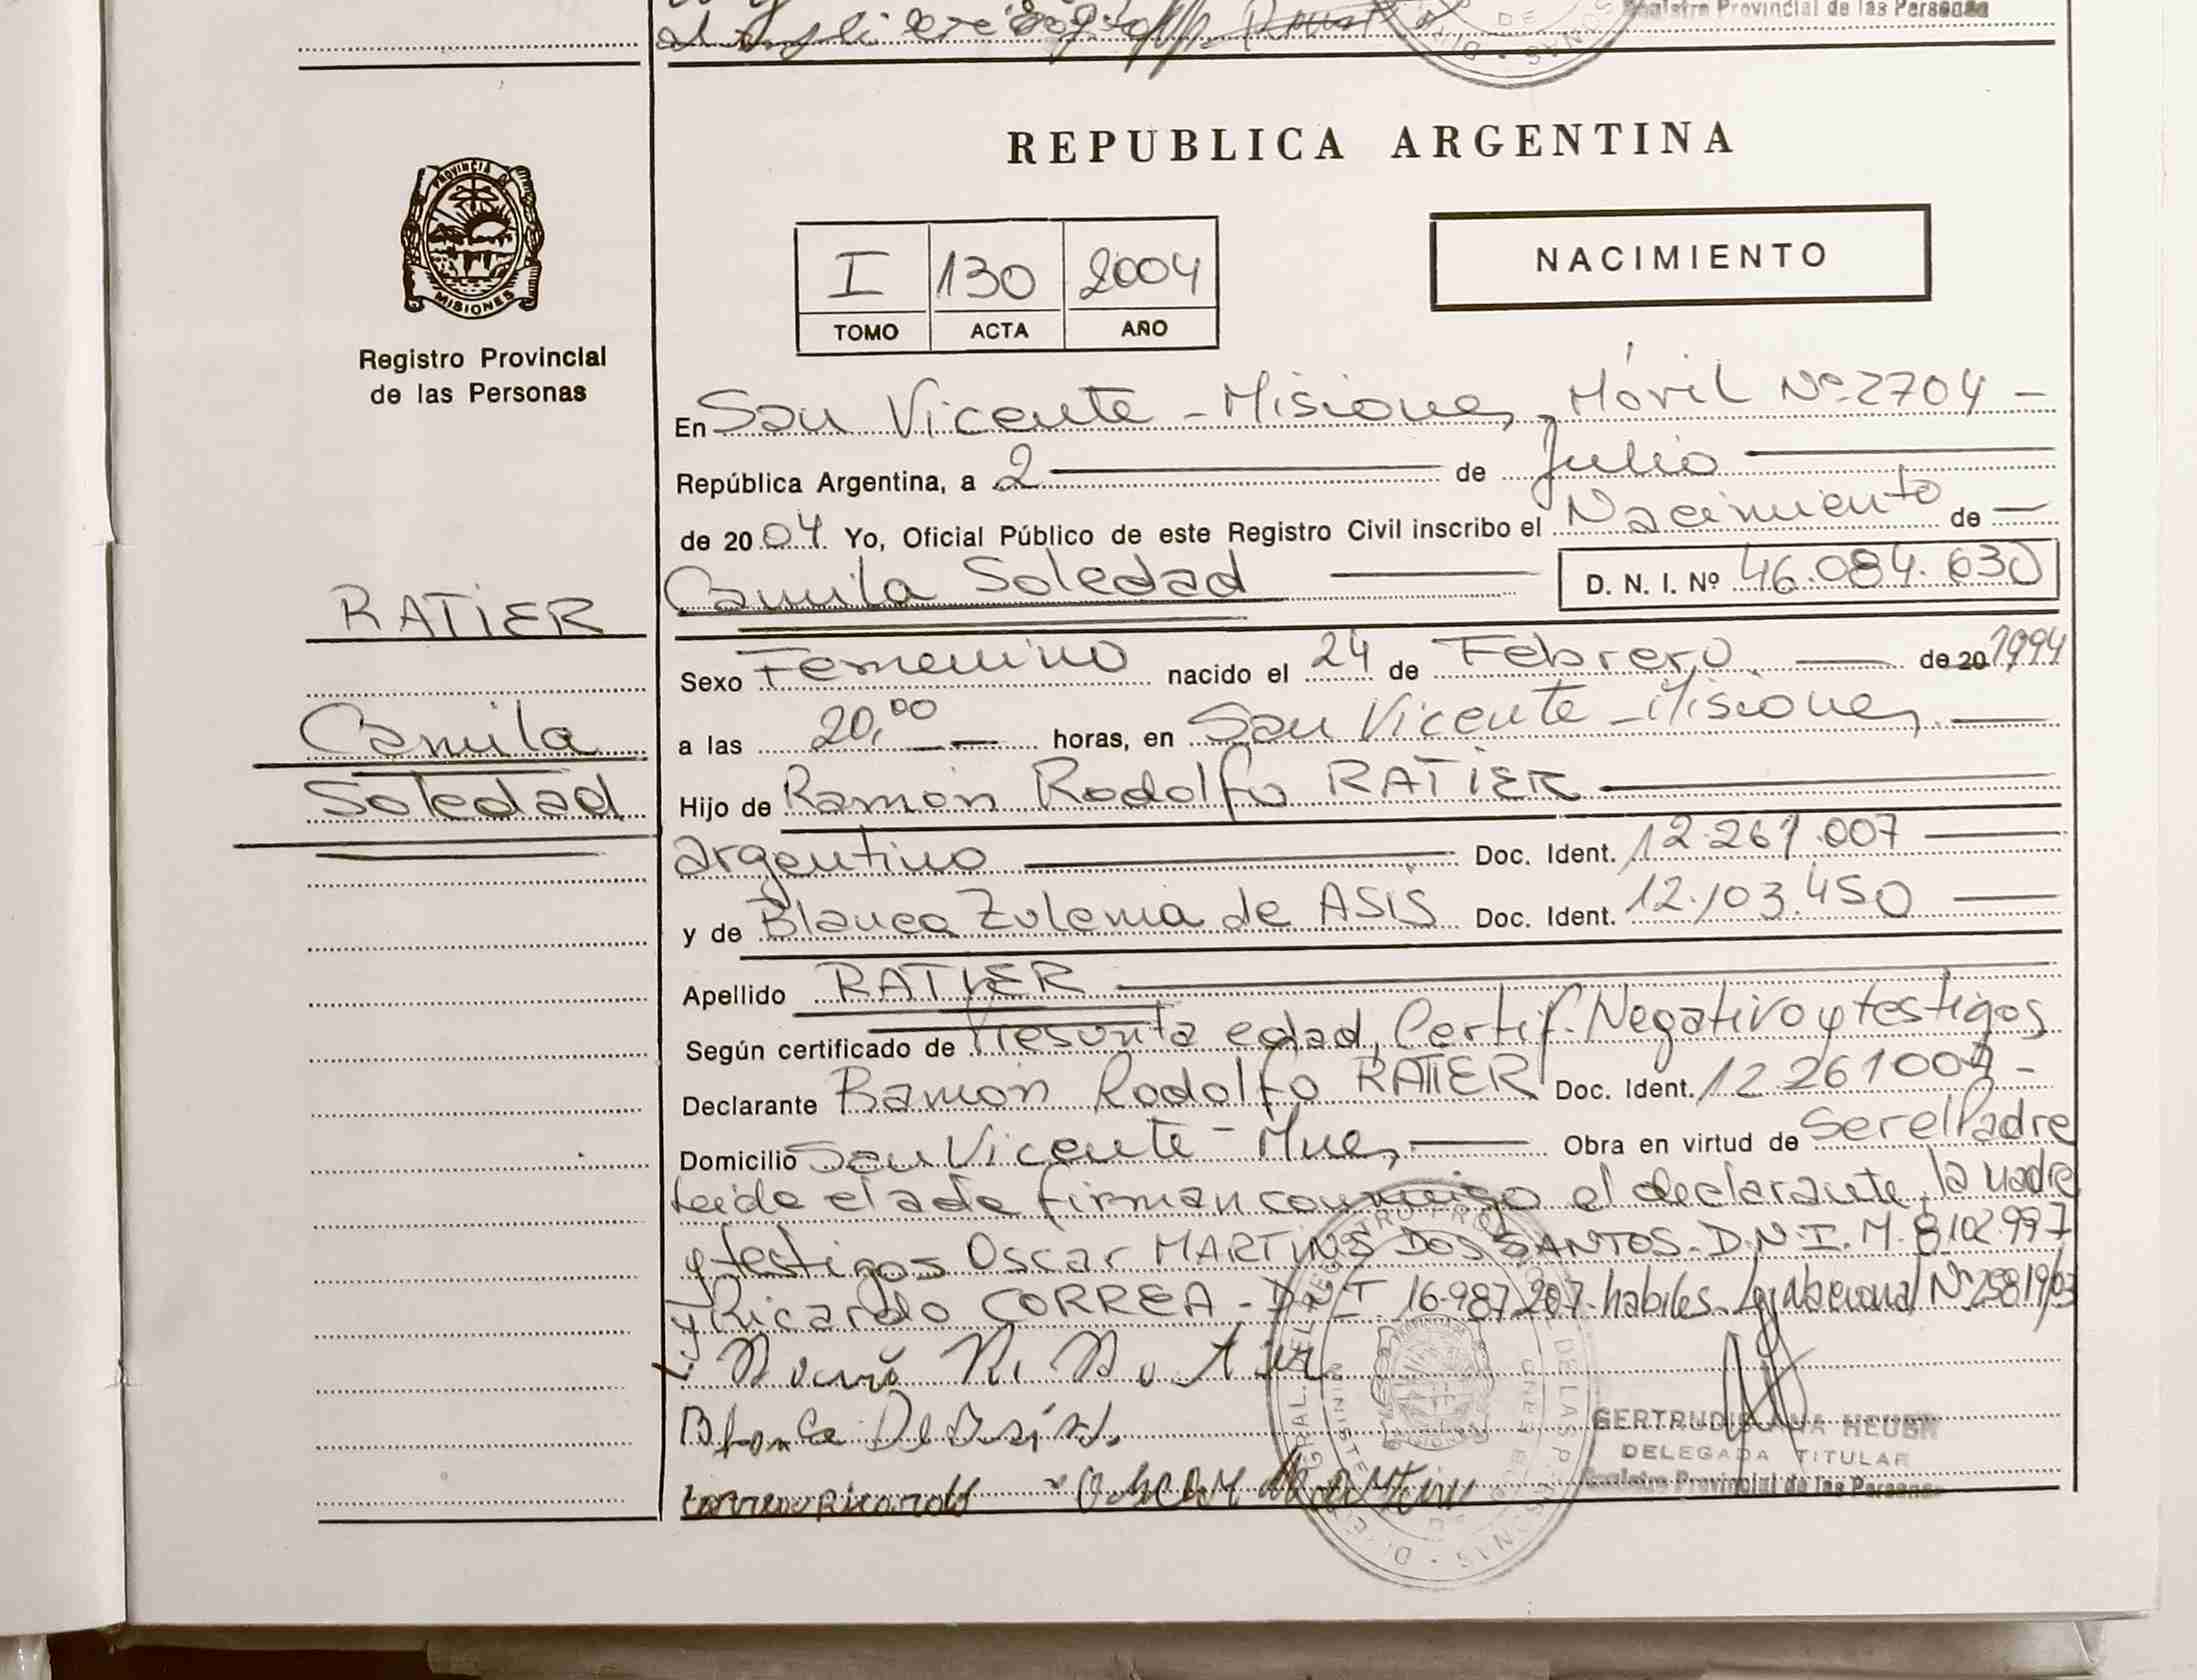 Registro Provincial de las Personas
REPUBLICA ARGENTINA
PROVINCIA DE
MISIONES
Registro Provincial
de las Personas
I 130 2004
TOMO ACTA AÑO
NACIMIENTO
En San Vicente - Misiones, Móvil Nº 2704 -
República Argentina, a 2 de Julio
de 2004 Yo, Oficial Público de este Registro Civil inscribo el Nacimiento de
Camila Soledad D. N. I. Nº 46.084.630
RATIER
Camila
Soledad
Sexo Femenino nacido el 24 de Febrero de 20 1994
a las 20,00 horas, en San Vicente - Misiones
Hijo de Ramón Rodolfo RATIER
argentino Doc. Ident. 12.261.007
y de Blanca Zulema de ASIS Doc. Ident. 12.103.450
Apellido RATIER
Según certificado de Presunta edad, Certif. Negativo y testigos
Declarante Ramón Rodolfo RATIER Doc. Ident. 12.261007 -
Domicilio San Vicente - Mnes, Obra en virtud de Ser el Padre
Leida el acta firman conmigo el declarante, la madre
y testigos Oscar MARTINS DOS SANTOS - D.N.I. M. 8.102.997
y Ricardo CORREA - DNI 16.987.207 - habiles. Ley Nacional Nº 25819/03
GERTRUDIS ANA HEUER
DELEGADA TITULAR
Registro Provincial de las Personas